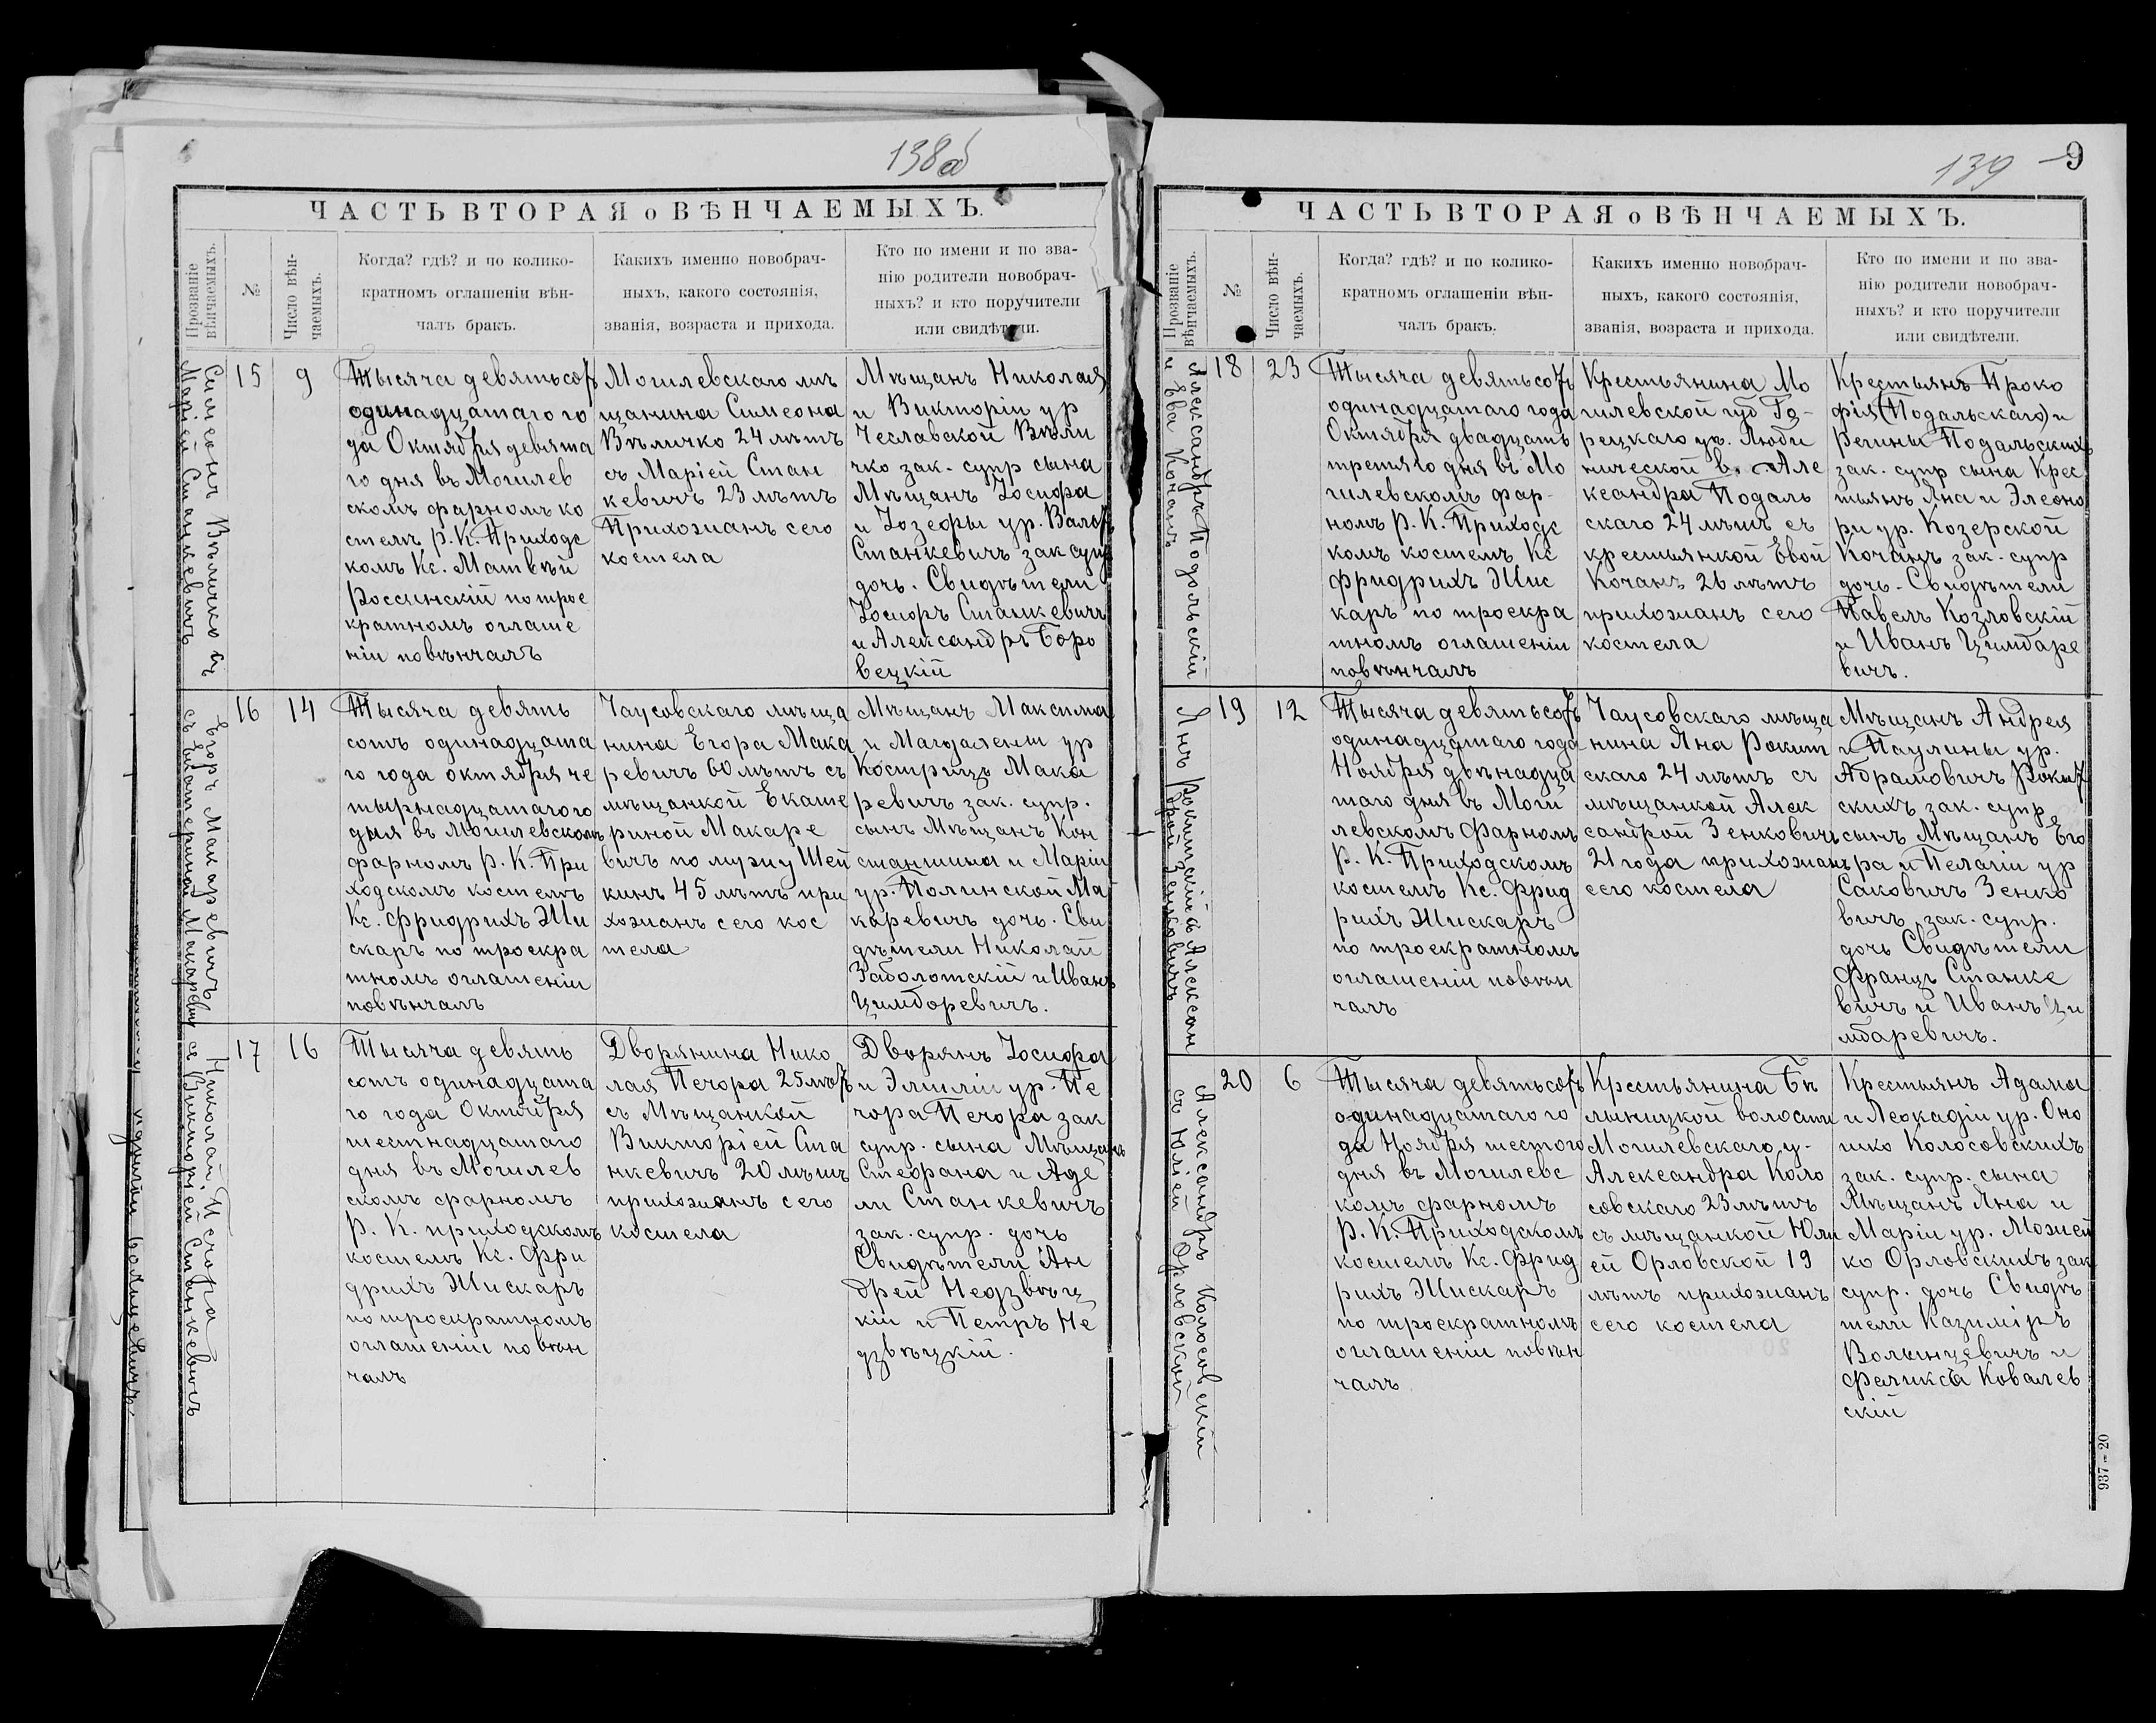 138об
ЧАСТЬ ВТОРАЯ о ВѢНЧАЕМЫХЪ.
Прозваніе
вѣнчаемыхъ.
№
Число вѣн-
чаемыхъ.
Когда? гдѣ? и по колико-
кратномъ оглашеніи вѣн-
чалъ бракъ.
Какихъ именно новобрач-
ныхъ, какого состоянія,
званія, возраста и прихода.
Кто по имени и по зва-
нію родители новобрач-
ныхъ? и кто поручители
или свидѣтели.
Симеонъ Вѣличко съ
Маріей Станкевичъ
15
9
Тысяча девятьсотъ
одинадцатаго го
да Октября девята
го дня въ Могилев
скомъ фарномъ ко
стелѣ Р. К. Приходс
комъ Кс. Матвѣй
Россинскій по трое
кратномъ оглаше
ніи повѣнчалъ
Могилевскаго мѣ
щанина Симеона
Вѣличко 24 лѣтъ
съ Маріей Стан
кевичъ 23 лѣтъ
Прихожанъ сего
костела
Мѣщанъ Николая
и Викторіи ур
Чеславской Вѣли
чко зак. супр сына
Мѣщанъ Іосифа
и Іозефы ур. Валоф
Станкевичъ зак супр
дочь. Свидѣтели
Іосифъ Станкевичъ
и Александръ Боро
вецкій
Егоръ Макаревичъ
съ Екатериной Макаревичъ
16
14
Тысяча девять
сотъ одинадцата
го года октября че
тырнадцатагого
дня въ Могилевскомъ
фарномъ Р. К. При
ходскомъ костелѣ
Кс. Фридрихъ Жи
скаръ по троекра
тномъ оглашеніи
повѣнчалъ
Чаусовскаго мѣща
нина Егора Мака
ревичъ 60 лѣтъ съ
мѣщанкой Екате
риной Макаре
вичъ по мужу Шей
кинъ 45 лѣтъ при
хожанъ сего кос
тела
Мѣщанъ Максима
и Магдалены ур
Кострицъ Мака
ревичъ зак. супр.
сынъ Мѣщанъ Кон
стантина и Маріи
ур. Полинской Ма
каревичъ дочь. Сви
дѣтели Николай
Заболотскій и Иванъ
Цимборевичъ.
Николай Печора
съ Викторіей Станкевичъ
17
16
Тысяча девять
сотъ одинадцата
го года Октября
шестнадцатаго
дня въ Могилев
скомъ фарномъ
Р. К. приходскомъ
костелѣ Кс. Фри
дрихъ Жискаръ
по троекратномъ
оглашеніи повѣн
чалъ
Дворянина Нико
лая Печора 25 лѣтъ
съ Мѣщанкой
Викторіей Ста
нкевичъ 20 лѣтъ
прихожанъ сего
костела
Дворянъ Іосифа
и Эмиліи ур. Пе
чора Печора зак
супр. сына Мѣщанъ
Стефана и Аде
ли Станкевичъ
зак. супр. дочь
Свидѣтели Ан
дрей Недзвѣц
кій и Петръ Не
дзвѣцкій.
139
9
ЧАСТЬ ВТОРАЯ о ВѢНЧАЕМЫХЪ.
Прозваніе
вѣнчаемыхъ.
№
Число вѣн-
чаемыхъ.
Когда? гдѣ? и по колико-
кратномъ оглашеніи вѣн-
чалъ бракъ.
Какихъ именно новобрач-
ныхъ, какого состоянія,
званія, возраста и прихода.
Кто по имени и по зва-
нію родители новобрач-
ныхъ? и кто поручители
или свидѣтели.
Александръ Подольскій
и Ева Кочанъ
18
23
Тысяча девятьсотъ
одинадцатаго года
Октября двадцать
третяго дня въ Мо
гилевскомъ фар-
номъ Р. К. Приходс
комъ костелѣ Кс
Фридрихъ Жис
каръ по троекра
тномъ оглашеніи
повѣнчалъ
Крестьянина Мо
гилевской губ Го-
рецкаго уѣ. Люби
нической в. Але
ксандра Подаль
скаго 24 лѣтъ съ
крестьянкой Евой
Кочанъ 26 лѣтъ
прихожанъ сего
костела
Крестьянъ Проко
фія (Подальскаго) и
Регины Подальскихъ
зак. супр сына Крес
тьянъ Яна и Элеоно
ри ур. Козерской
Кочанъ зак. супр
дочь. Свидѣтели
Павелъ Козловскій
и Иванъ Цимбаре
вичъ.
Янъ Рокитскій съ Алексан
дрой Зенковичъ
19
12
Тысяча девятьсотъ
одинадцатаго года
Ноября двѣнадца
таго дня въ Моги
левскомъ Фарномъ
Р. К. Приходскомъ
костелѣ Кс. Фрид
рихъ Жискаръ
по троекратномъ
оглашеніи повѣн
чалъ
Чаусовскаго мѣща
нина Яна Рокит
скаго 24 лѣтъ съ
мѣщанкой Алек
сандрой Зенковичъ
21 года прихожанъ
сего костела
Мѣщанъ Андрея
и Паулины ур.
Абрамовичъ Рокит
скихъ зак. супр
сынъ Мѣщанъ Его
ра и Пелагіи ур
Саковичъ Зенко
вичъ зак. супр.
дочь Свидѣтели
Францъ Станке
вичъ и Иванъ Ци
мбаревичъ.
Александръ Колосовскій
съ Юліей Орловской
20
6
Тысяча девятьсотъ
одинадцатаго го
да Ноября шестого
дня въ Могилевс
комъ фарномъ
Р. К. Приходскомъ
костелѣ Кс. Фрид
рихъ Жискаръ
по троекратномъ
оглашеніи повѣн
чалъ
Крестьянина Бѣ
лыницкой волости
Могилевскаго у.
Александра Коло
совскаго 23 лѣтъ
съ мѣщанкой Юли
ей Орловской 19
лѣтъ прихожанъ
сего костела
Крестьянъ Адама
и Леокадіи ур. Оно
шко Колосовскихъ
зак. супр. сына
Мѣщанъ Яна и
Маріи ур. Можей
ко Орловскихъ зак
супр. дочь Свидѣ
тели Казиміръ
Волынцевичъ и
Феликсъ Ковалев
скій
937-20